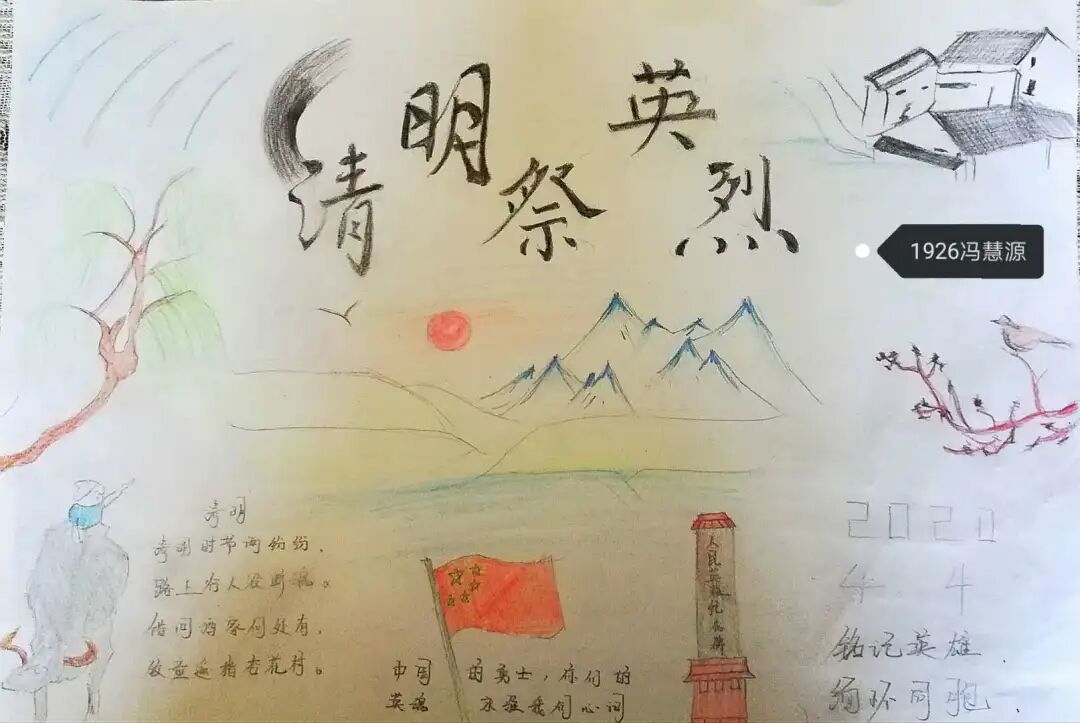 清明祭英烈
1926冯慧源
清明
清明时节雨纷纷,
路上行人欲断魂。
借问酒家何处有,
牧童遥指杏花村。
中国 的勇士,你们的
英魂 我们心间
人民英雄纪念碑
2020
4 4
铭记英雄.
缅怀同胞.